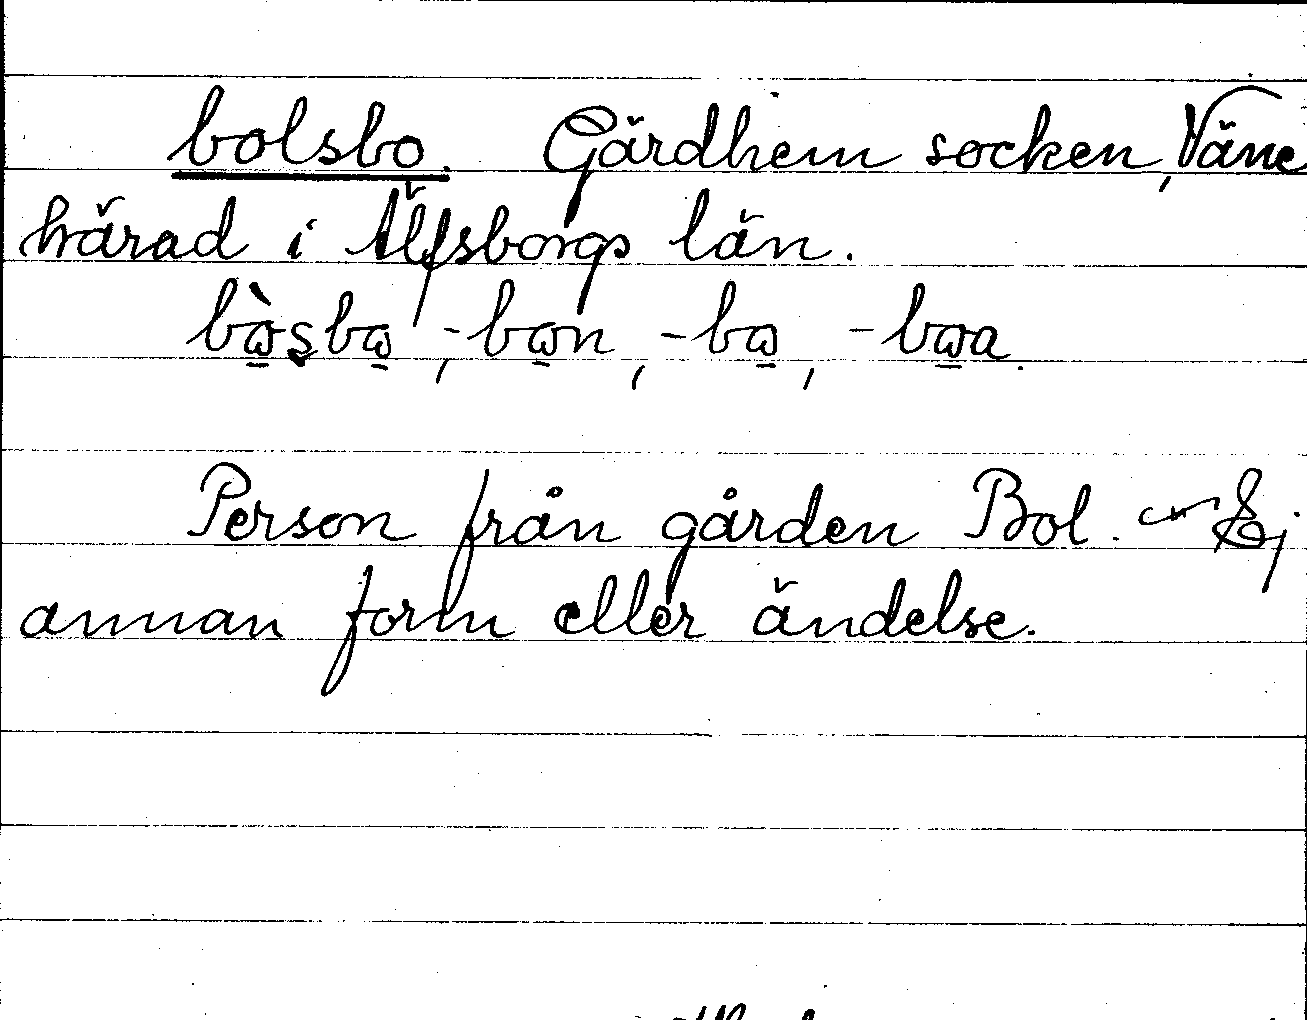 bolsbo. Gärdhem socken, Väne
härad i Älfsborgs län.
bὼ̱şbω̱, -bω̱n, -bω̱, -bω̱a.
Person från gården Bol. — Ej
annan form eller ändelse.